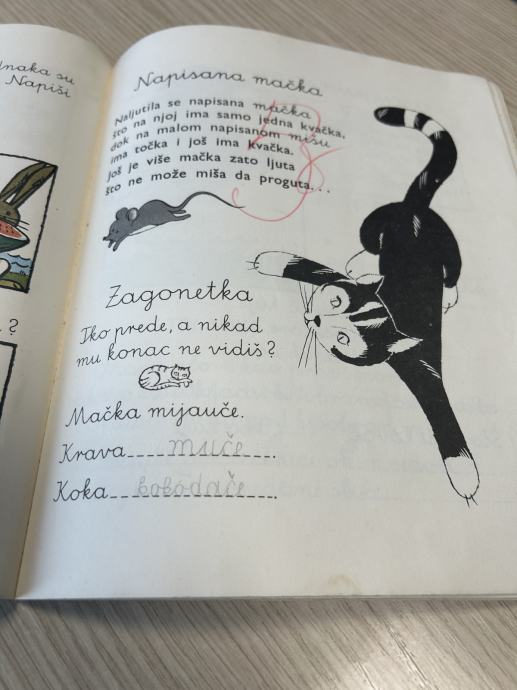 dnaka su
Napiši
?
Napisana mačka
Naljutila se napisana mačka
što na njoj ima samo jedna kvačka,
dok na malom napisanom mišu
ima točka i još ima kvačka.
Još je više mačka zato ljuta
što ne može miša da proguta...
Zagonetka
Tko prede, a nikad
mu konac ne vidiš?
Mačka mijauče.
Krava muče.
Koka kokodače.